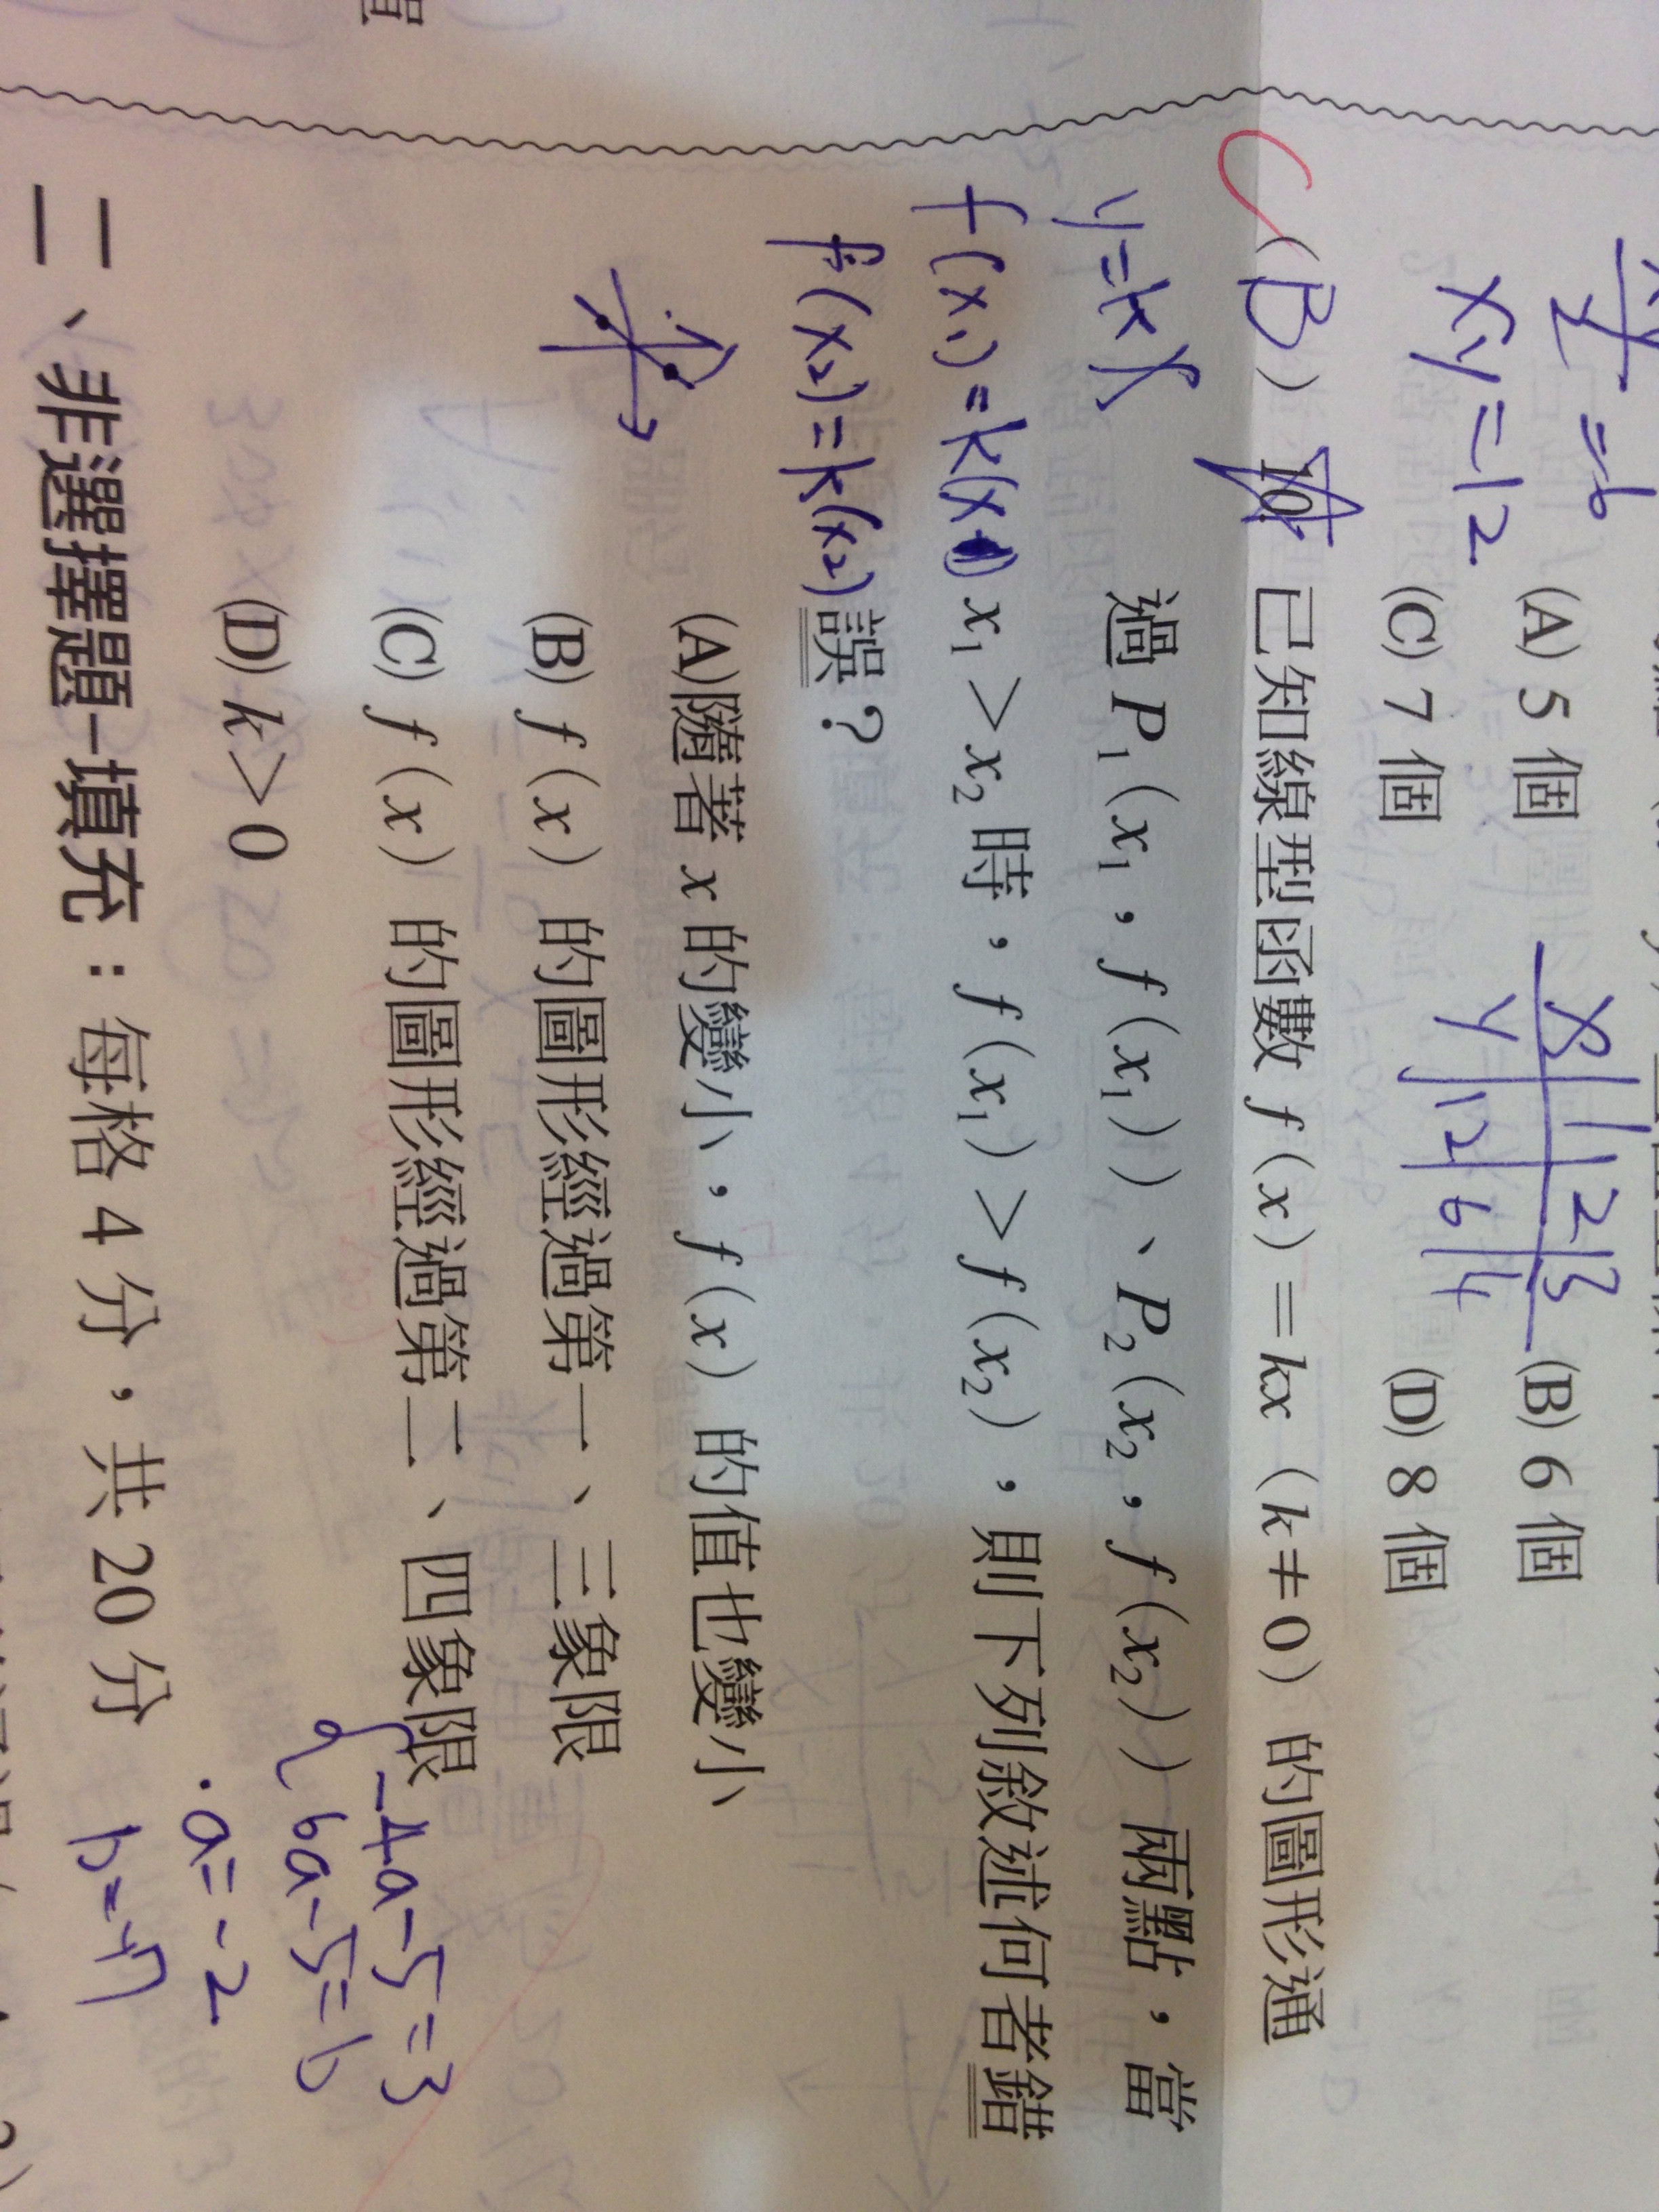 =6
xy=12
(A) 5 個
(B) 6 個
(C) 7 個
(D) 8 個
x 1 2 3
y 12 6 4
C
(B) 10. 已知線型函數 f(x)=kx(k≠0)的圖形通
過 P₁(x₁,f(x₁))、P₂(x₂,f(x₂))兩點,當
x₁>x₂時,f(x₁)>f(x₂),則下列敘述何者錯
誤?
y=kx
f(x₁)=k(x₁)
f(x₂)=k(x₂)
(A)隨著 x 的變小,f(x)的值也變小
(B) f(x)的圖形經過第一、三象限
(C) f(x)的圖形經過第二、四象限
(D) k>0
-4a-5=3
6a-5=b
a=-2
二、非選擇題-填充:每格 4 分,共 20 分